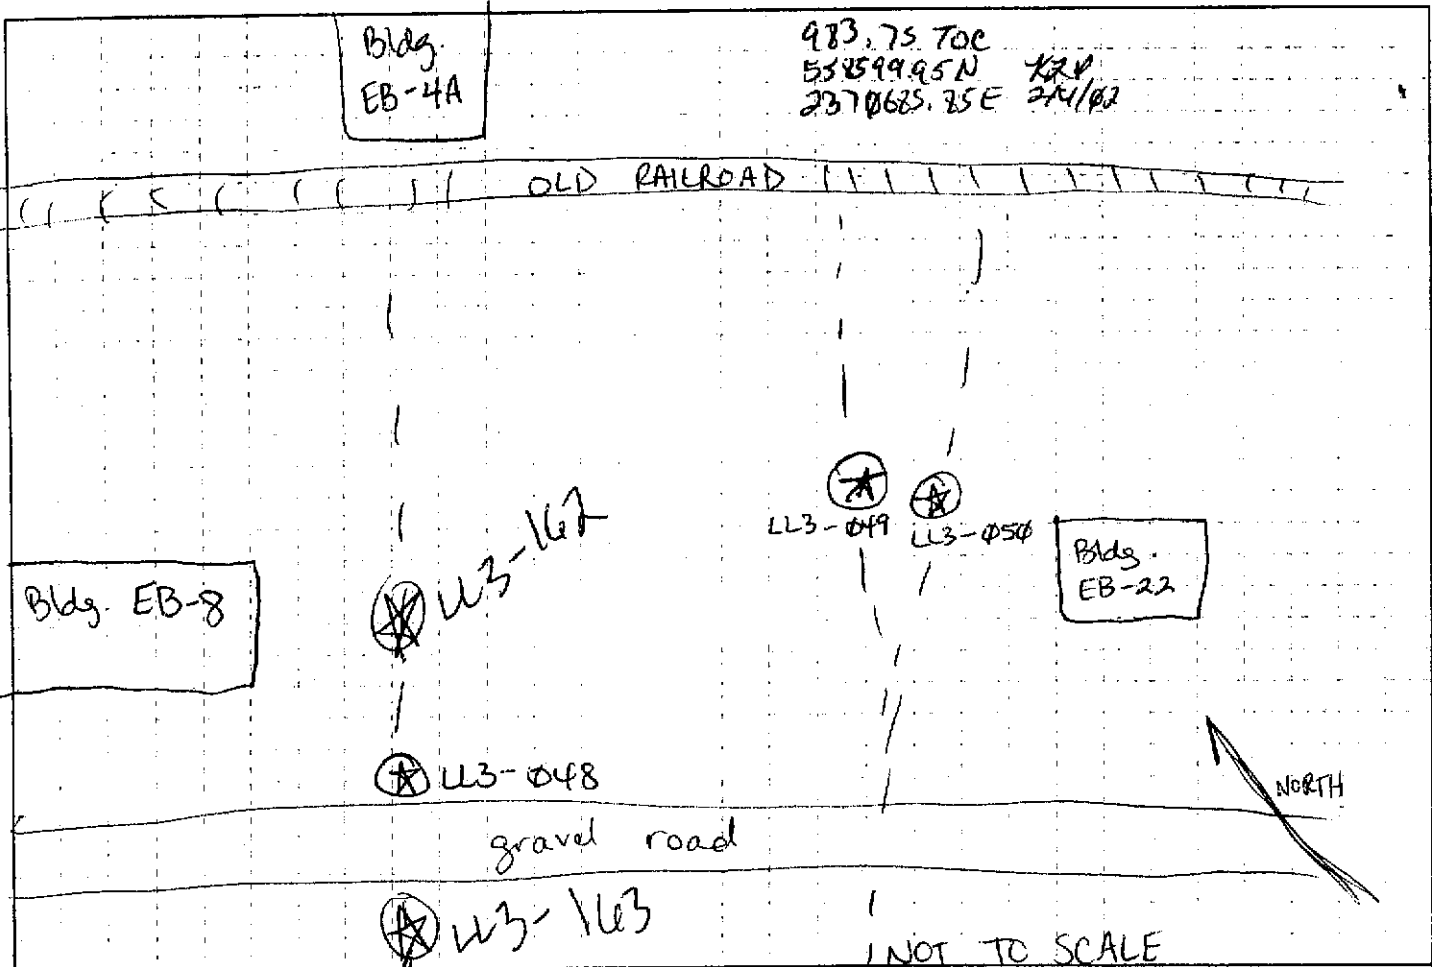 Bldg.
EB-4A
983.75 TOC
558599.95N KZD
2370685.85E 2/4/02
OLD RAILROAD
LL3-162
LL3-049
LL3-050
Bldg.
EB-22
Bldg. EB-8
LL3-048
NORTH
gravel road
LL3-163
NOT TO SCALE